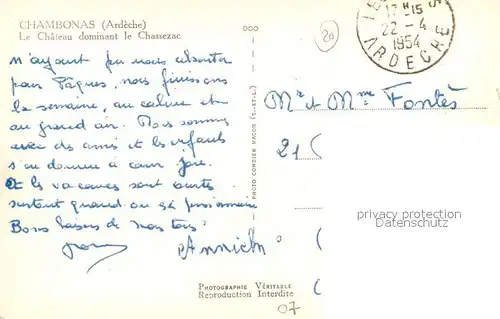 CHAMBONAS (Ardèche)
Le Château dominant le Chassezac
n'ayant pu nous absenter
pour Pâques, nous finissons
la semaine, au calme et
au grand air. Nous sommes
avec des amis et les enfants
s'en donnent à cœur joie.
et les vacances sont courtes
surtout quand on est
Bons baisers de nous tous
Annick
PHOTO COMBIER MACON (S.-ET-L.)
20
17H15
22-4
1954
ARDECHE
Mr et Mme Fontès
21
privacy protection
www.akpool.co.uk
PHOTOGRAPHIE VÉRITABLE
Reproduction Interdite
07